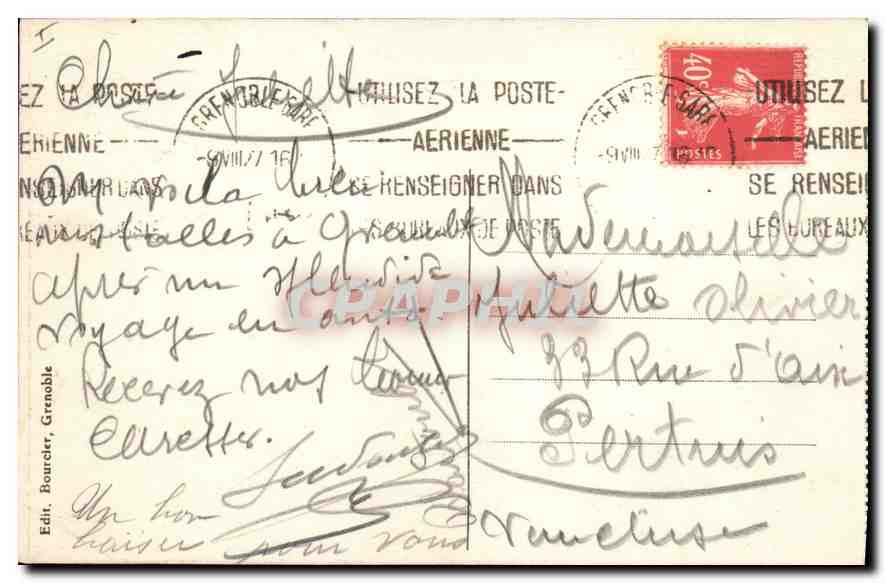 I
Chère Juliette
GRENOBLE-GARE
-9 VIII 16
UTILISEZ LA POSTE-
AERIENNE
SE RENSEIGNER DANS
LES BUREAUX DE POSTE
EZ LA POSTE-
ERIENNE
NSEIGNER DANS
GRENOBLE-GARE
-9 VIII
UTILISEZ L
AERIEN
SE RENSEI
LES BUREAUX
REPUBLIQUE FRANCAISE
40c
POSTES
voila bien
installés à Grenoble
après un splendide
voyage en auto
Recevez nos bonnes
Caresses.
Un bon
baiser pour vous
Mademoiselle
Juliette Olivier
33 Rue d'Aix
Pertuis
Vaucluse
Edit. Bourcier, Grenoble
CPAPHIL